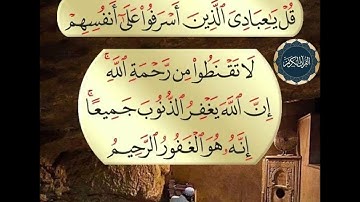 قُلْ يَٰعِبَادِىَ ٱلَّذِينَ أَسْرَفُوا۟ عَلَىٰٓ أَنفُسِهِمْ
لَا تَقْنَطُوا۟ مِن رَّحْمَةِ ٱللَّهِ ۚ
إِنَّ ٱللَّهَ يَغْفِرُ ٱلذُّنُوبَ جَمِيعًا ۚ
إِنَّهُۥ هُوَ ٱلْغَفُورُ ٱلرَّحِيمُ
القرآن الكريم